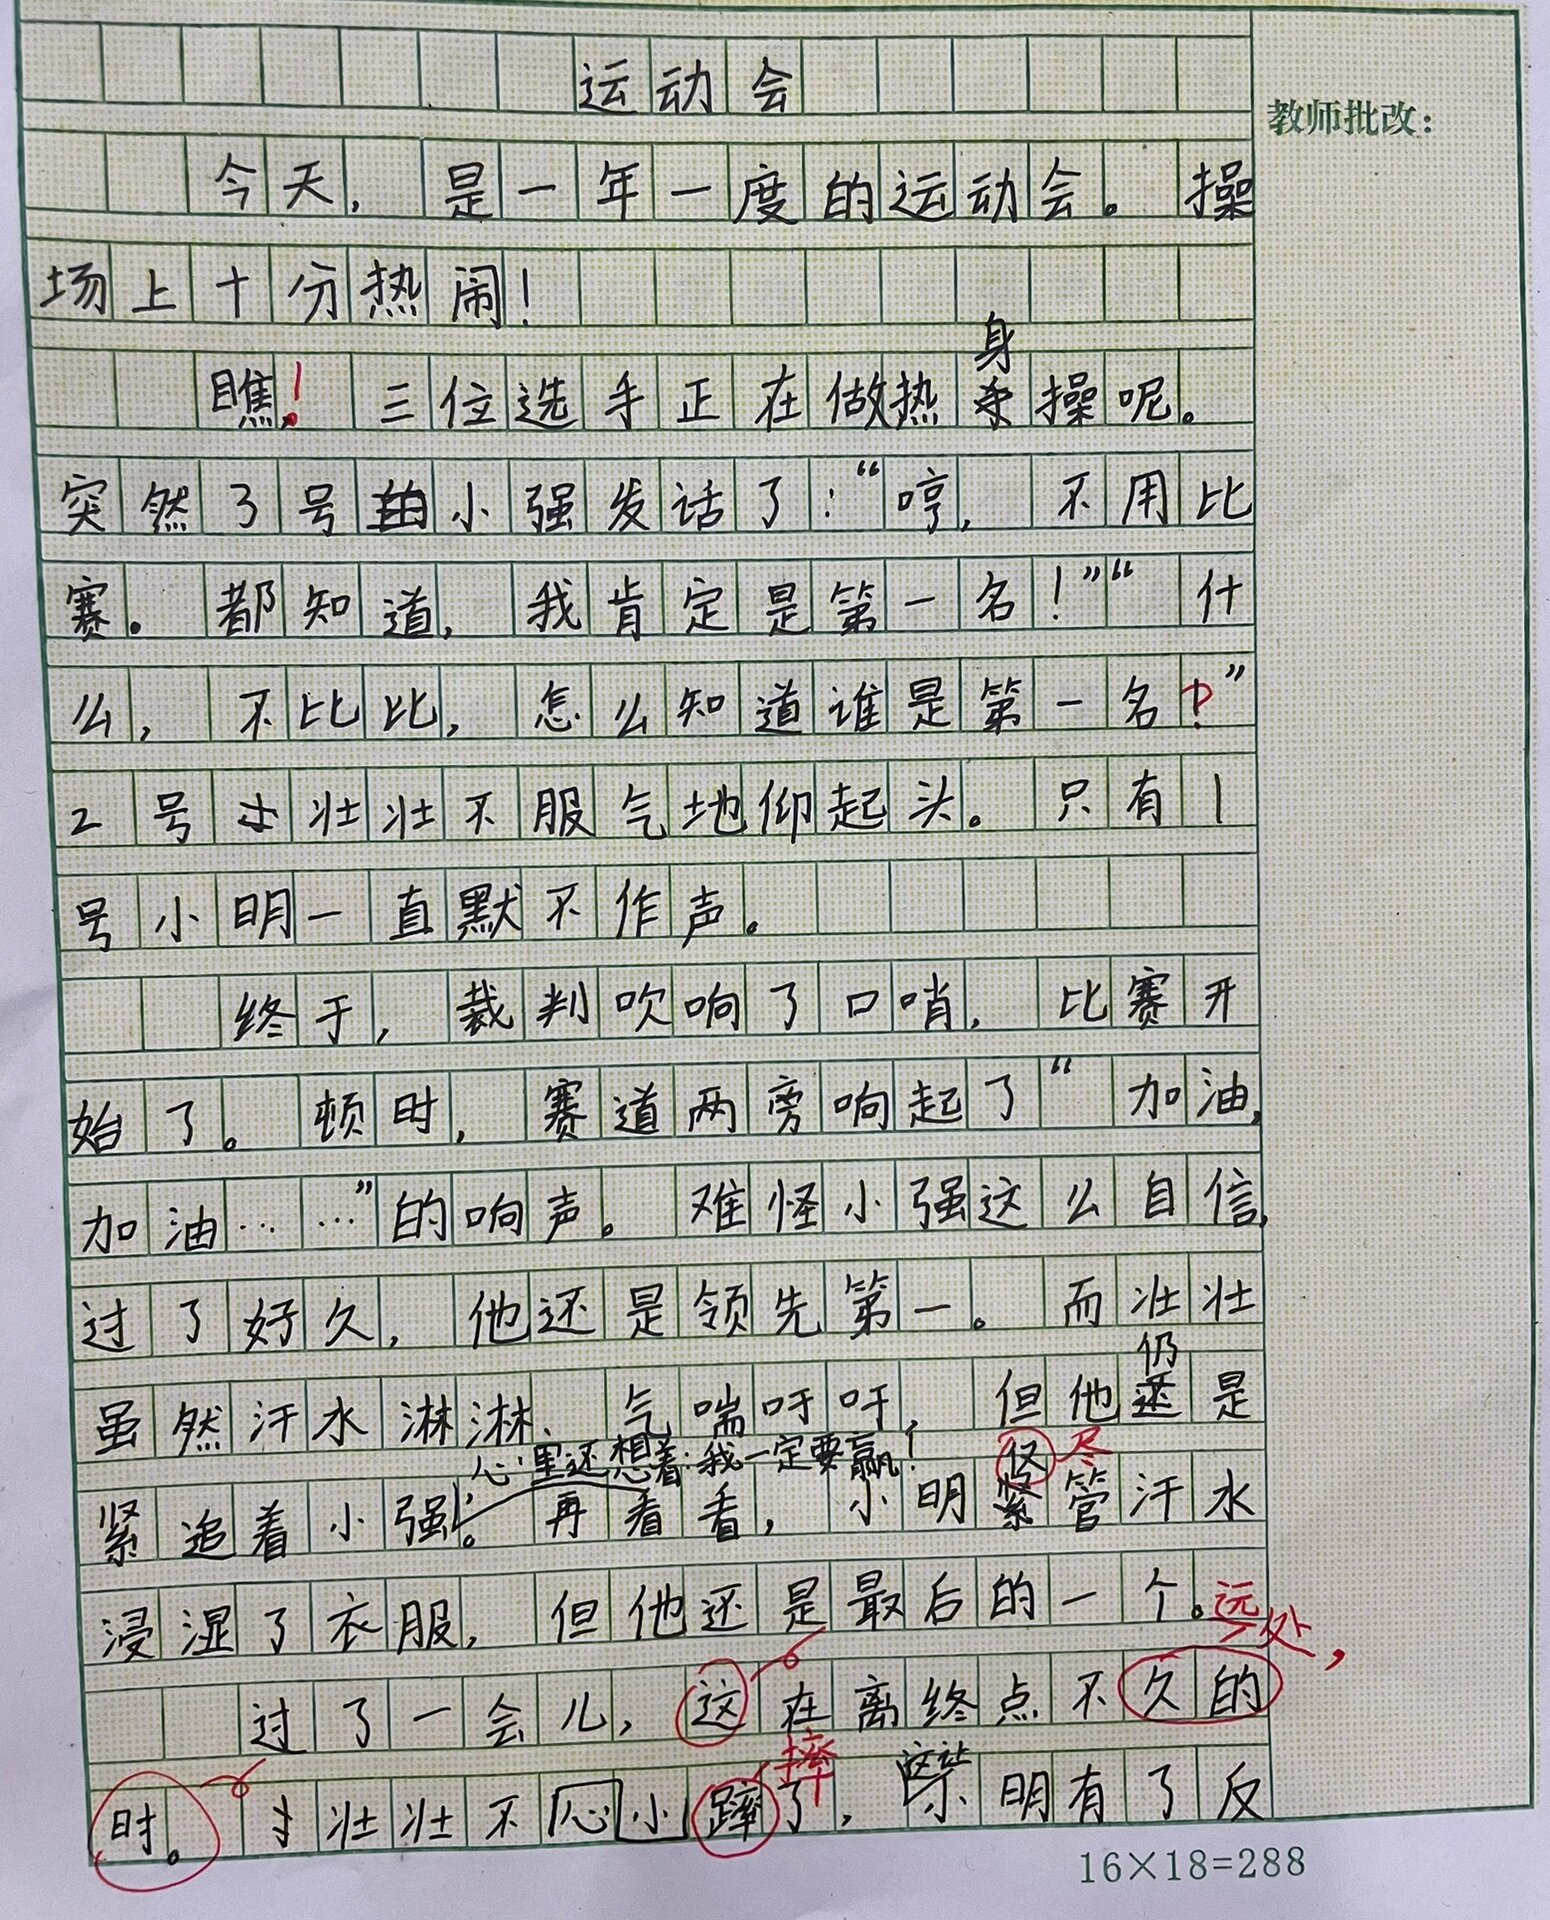 运动会
教师批改：
今天，是一年一度的运动会。操
场上十分热闹！
身
瞧！三位选手正在做热操呢。
突然3号小强发话了：“哼，不用比
赛。都知道，我肯定是第一名！”“什
么，不比比，怎么知道谁是第一名？”
2号壮壮不服气地仰起头。只有1
号小明一直默不作声。
终于，裁判吹响了口哨，比赛开
始了。顿时，赛道两旁响起了“加油，
加油……”的响声。难怪小强这么自信，
过了好久，他还是领先第一。而壮壮
仍
虽然汗水淋淋、气喘吁吁，但他还是
心里还想着：我一定要赢！
仅 尽
紧追着小强。再看看，小明紧管汗水
浸湿了衣服，但他还是最后的一个。
远处，
过了一会儿，这在离终点不久的
摔
这让
时。壮壮不心小蹿了，小明有了反
16×18=288